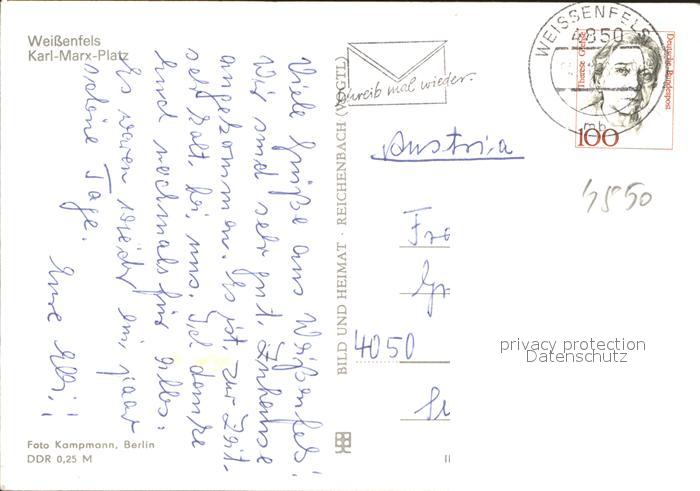 Weißenfels
Karl-Marx-Platz
Viele Grüße aus Weißenfels!
Wir sind sehr gut, Zuhause
angekommen. Es ist, zur Zeit-
sehr kalt, bei, uns. Ich danke
Euch nochmals für alles.
Es waren wieder ein, paar
schöne Tage.
Eure Elli,!
Foto Kampmann, Berlin
DDR 0,25 M
BILD UND HEIMAT · REICHENBACH (VOGTL)
II
Schreib mal wieder.
WEISSENFELS
4850
mb
Therese Giehse
Deutsche Bundespost
100
Austria
4850
Fra
Gr
4050
privacy protection
Datenschutz